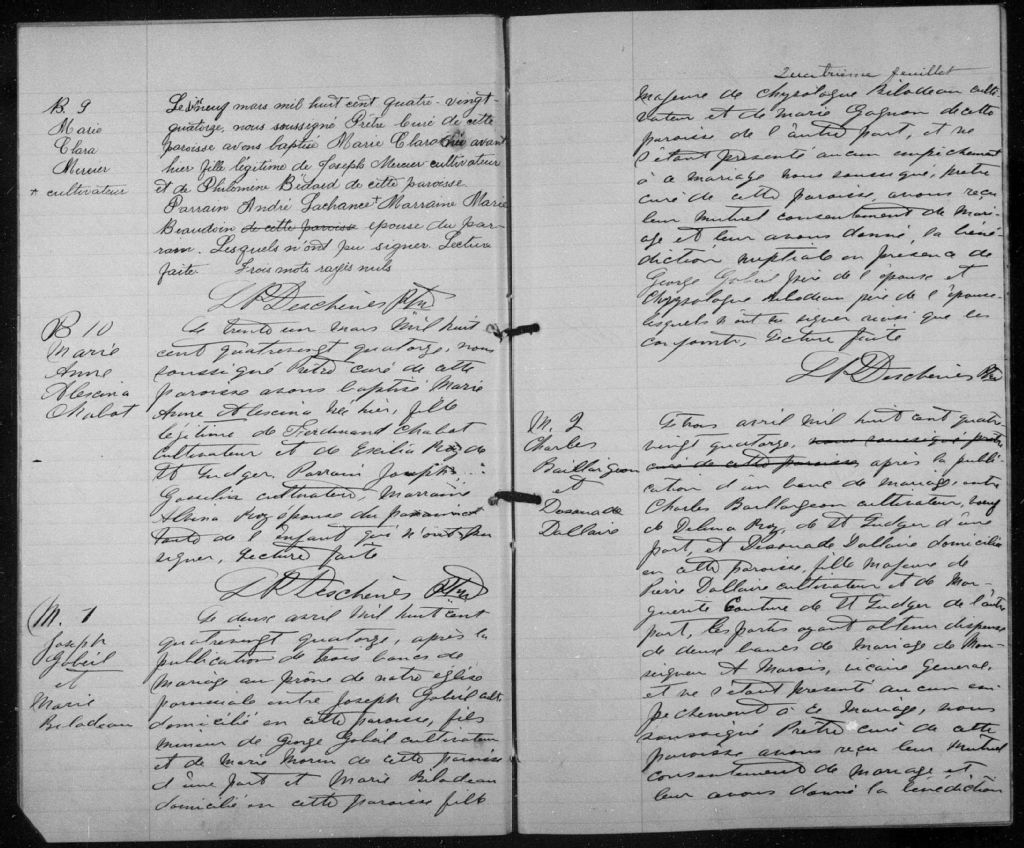 B. 9
Marie
Clara
Mercier
+ cultivateur
Le neuf mars mil huit cent quatre-vingt-
quatorze, nous soussigné Prêtre Curé de cette
paroisse avons baptisé Marie Clara née avant
hier fille légitime de Joseph Mercier cultivateur
et de Philomène Bédard de cette paroisse.
Parrain André Lachance + Marraine Marie
Beaudoin de cette paroisse épouse du par-
rain. Lesquels n'ont pu signer. Lecture
faite. Trois mots rayés nuls
Deschènes Ptre
B 10
Marie
Anne
Alescina
Chabot
Le trente un Mars Mil huit
cent quatrevingt quatorze, nous
soussigné Prêtre curé de cette
paroisse avons baptisé Marie
Anne Alescina née hier, fille
légitime de Ferdinand Chabot
cultivateur et de Roy de
St Gudger Parrain Joseph
Gosselin cultivateur, Marraine
Albina Roy épouse du parrain
de l'enfant qui n'ont pu
signer, Lecture faite
Deschènes Ptre
M. 1
Joseph
Gobeil
et
Marie
Bilodeau
Le deuse avril Mil huit cent
quatrevingt quatorze, après la
publication de trois bancs de
Mariage au prône de notre église
paroissiale entre Joseph Gobeil cult.
domicilié en cette paroisse, fils
mineur de George Gobeil cultivateur
et de Marie Morin de cette paroisse
d'une part et Marie Bilodeau
domicilié en cette paroisse fille
Quatrième feuillet
Majeure de Chrysologue Bilodeau culti-
vateur et de Marie Gagnon de cette
paroisse de l'autre part, et ne
s'étant présenté aucun empêchement
à ce mariage nous soussigné, prêtre
curé de cette paroisse, avons reçu
leur mutuel consentement de Mari-
age et leur avons donné, la béné-
diction nuptiale en présence de
George Gobeil père de l'épous et
Chrysologue Bilodeau père de l'épouse
lesquels n'ont su signer ainsi que les
conjoints. Lecture faite
Deschènes Ptre
M. 2
Charles
Baillargeon
et
Dallaire
Le trois avril Mil huit cent quatre
vingt quatorze, nous soussigné prêtre
curé de cette paroisse après la publi-
cation d'un banc de mariage, entre
Charles Baillargeon cultivateur, veuf
de Delina Roy, de St Gudger d'une
part, et Dallaire domiciliée
en cette paroisse, fille majeure de
Pierre Dallaire cultivateur et de Mar-
guerite Couture de St Gudger de l'autre
part, les partis ayant obtenu dispense
de deuse bancs de Mariage de Mon-
seigneur A Marois, vicaire General,
et ne s'étant présenté aucun em-
pêchement à ce Mariage, nous
soussigné Prêtre curé de cette
paroisse avons reçu leur Mutuel
consentement de mariage et
leur avons donné la bénédiction